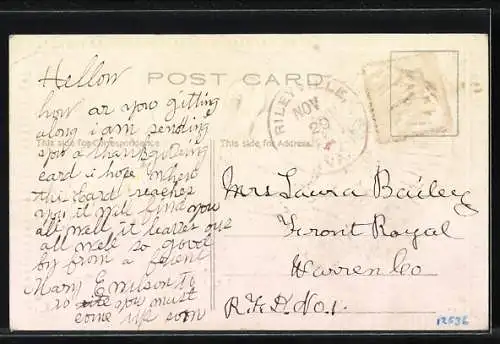 Hellow
POST CARD
how ar you gitting
along i am sending
you a thanksgiveing
card i hope when
this Card reaches
you it will find you
all well it leaves us
all well so good
by from a frient
Mary E Wilson to
so you must
come up soon
This side for Correspondence
This side for Address
RILEYVILLE,
NOV
20
VA.
Mrs Laura Bailey
Front Royal
Warren Co
R.F.D. No. 1.
12536